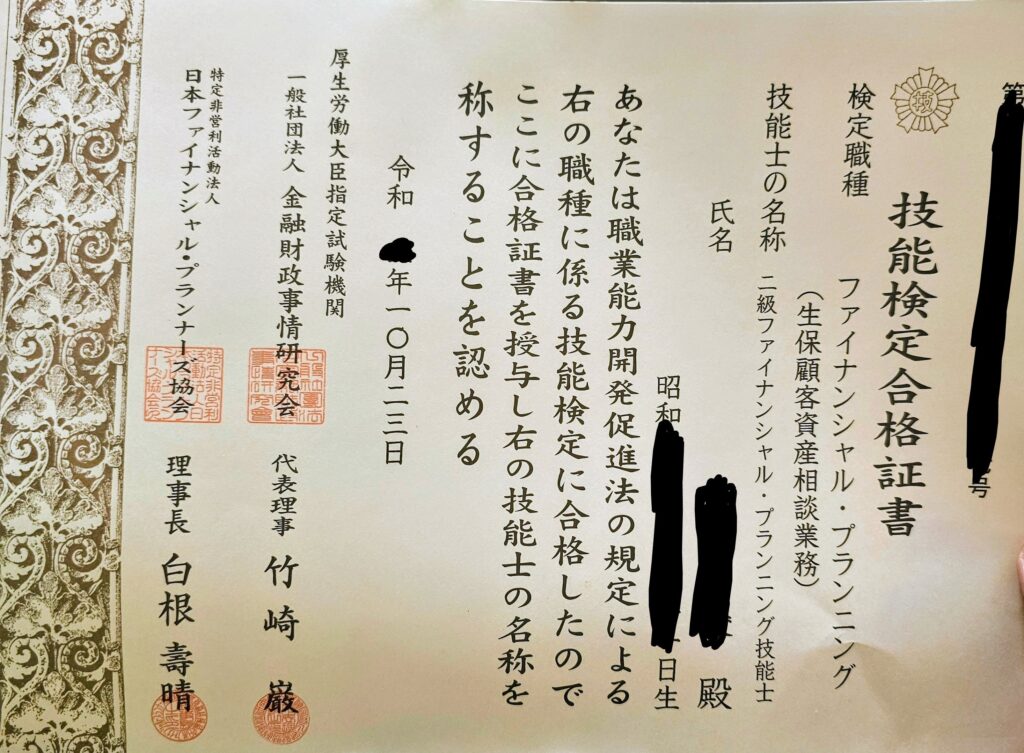 第
号
技能検定合格証書
検定職種 ファイナンシャル・プランニング
（生保顧客資産相談業務）
技能士の名称 二級ファイナンシャル・プランニング技能士
氏名
殿
昭和
日生
あなたは職業能力開発促進法の規定による
右の職種に係る技能検定に合格したので
ここに合格証書を授与し右の技能士の名称を
称することを認める
令和
年一〇月二三日
厚生労働大臣指定試験機関
一般社団法人 金融財政事情研究会 代表理事 竹崎 巌
特定非営利活動法人
日本ファイナンシャル・プランナーズ協会 理事長 白根壽晴